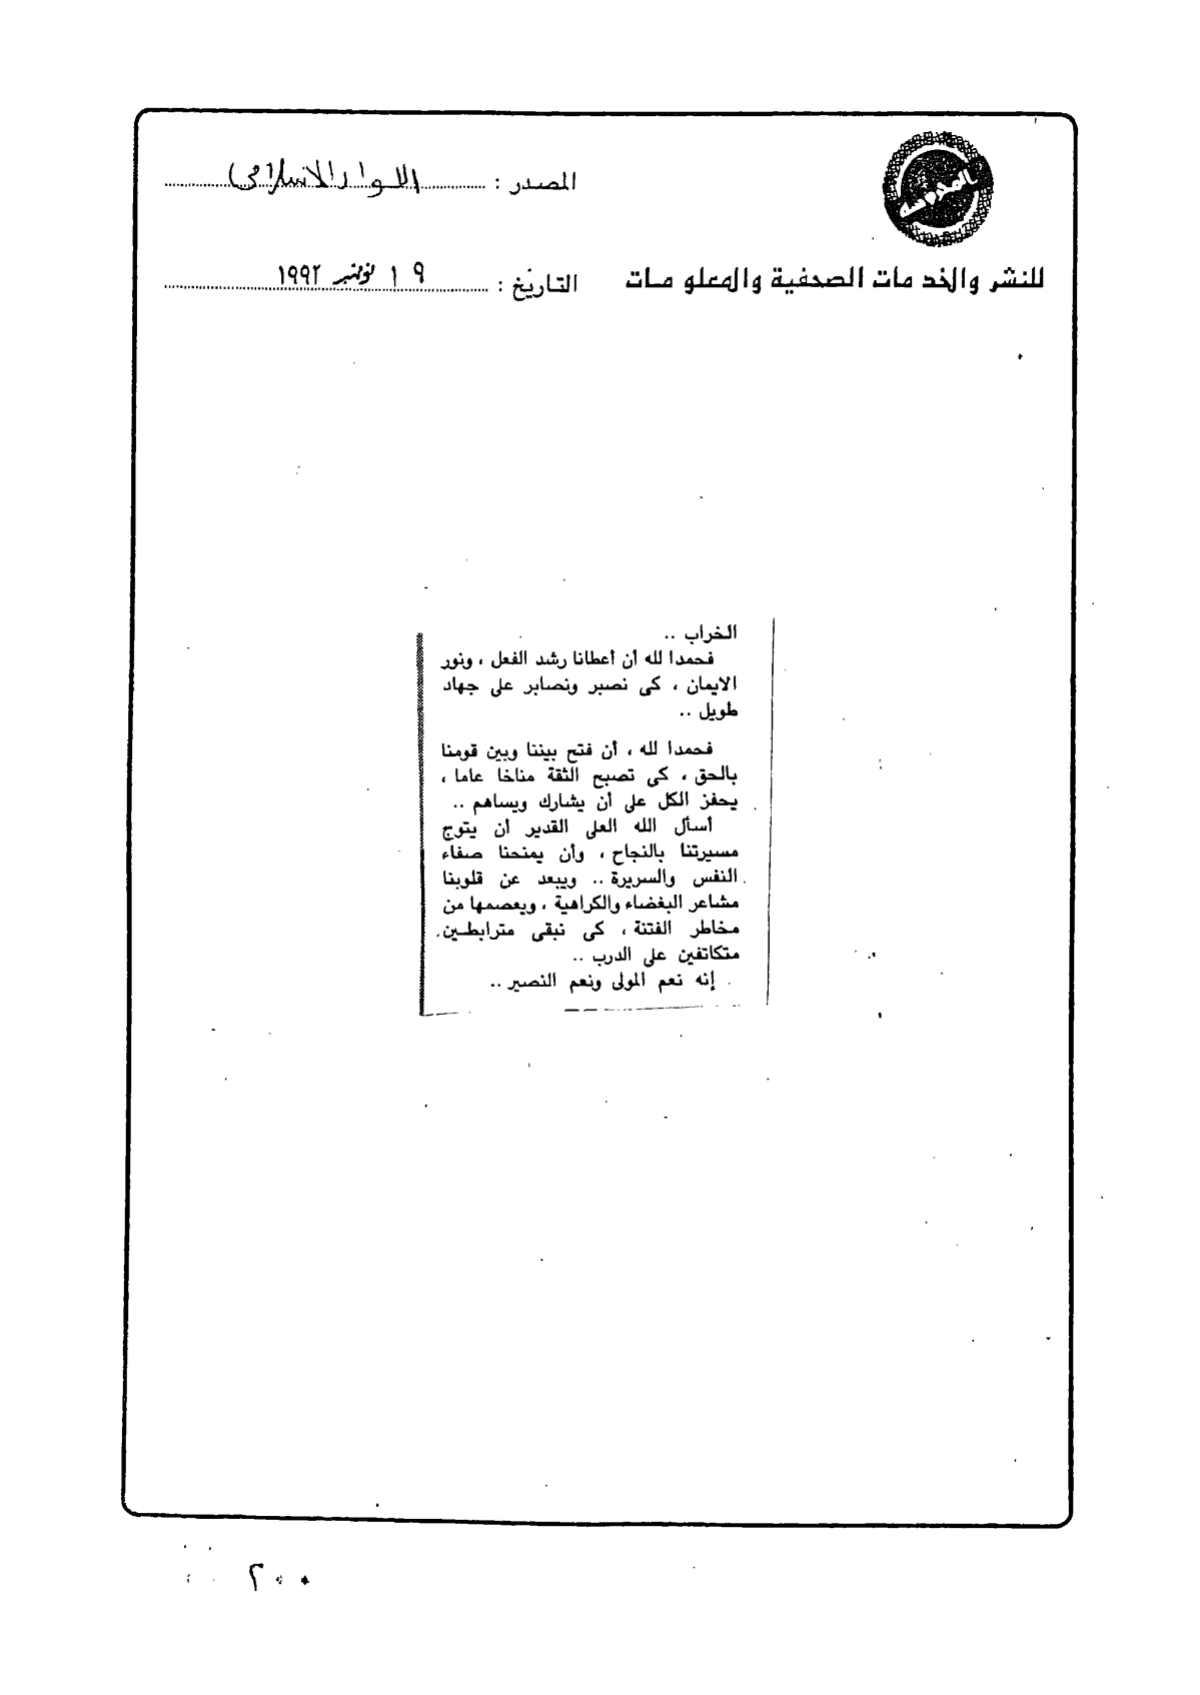 المصدر : اللواء الاسلامى
للنشر والخدمات الصحفية والمعلومات
التاريخ : ١٩ نوفمبر ١٩٩٢
الخراب ..
فحمدا لله أن أعطانا رشد الفعل ، ونور
الايمان ، كى نصبر ونصابر على جهاد
طويل ..
فحمدا لله ، أن فتح بيننا وبين قومنا
بالحق ، كى تصبح الثقة مناخا عاما ،
يحفز الكل على أن يشارك ويساهم ..
أسأل الله العلى القدير أن يتوج
مسيرتنا بالنجاح ، وأن يمنحنا صفاء
النفس والسريرة .. ويبعد عن قلوبنا
مشاعر البغضاء والكراهية ، ويعصمها من
مخاطر الفتنة ، كى نبقى مترابطين
متكاتفين على الدرب ..
إنه نعم المولى ونعم النصير ..
٢٠٠